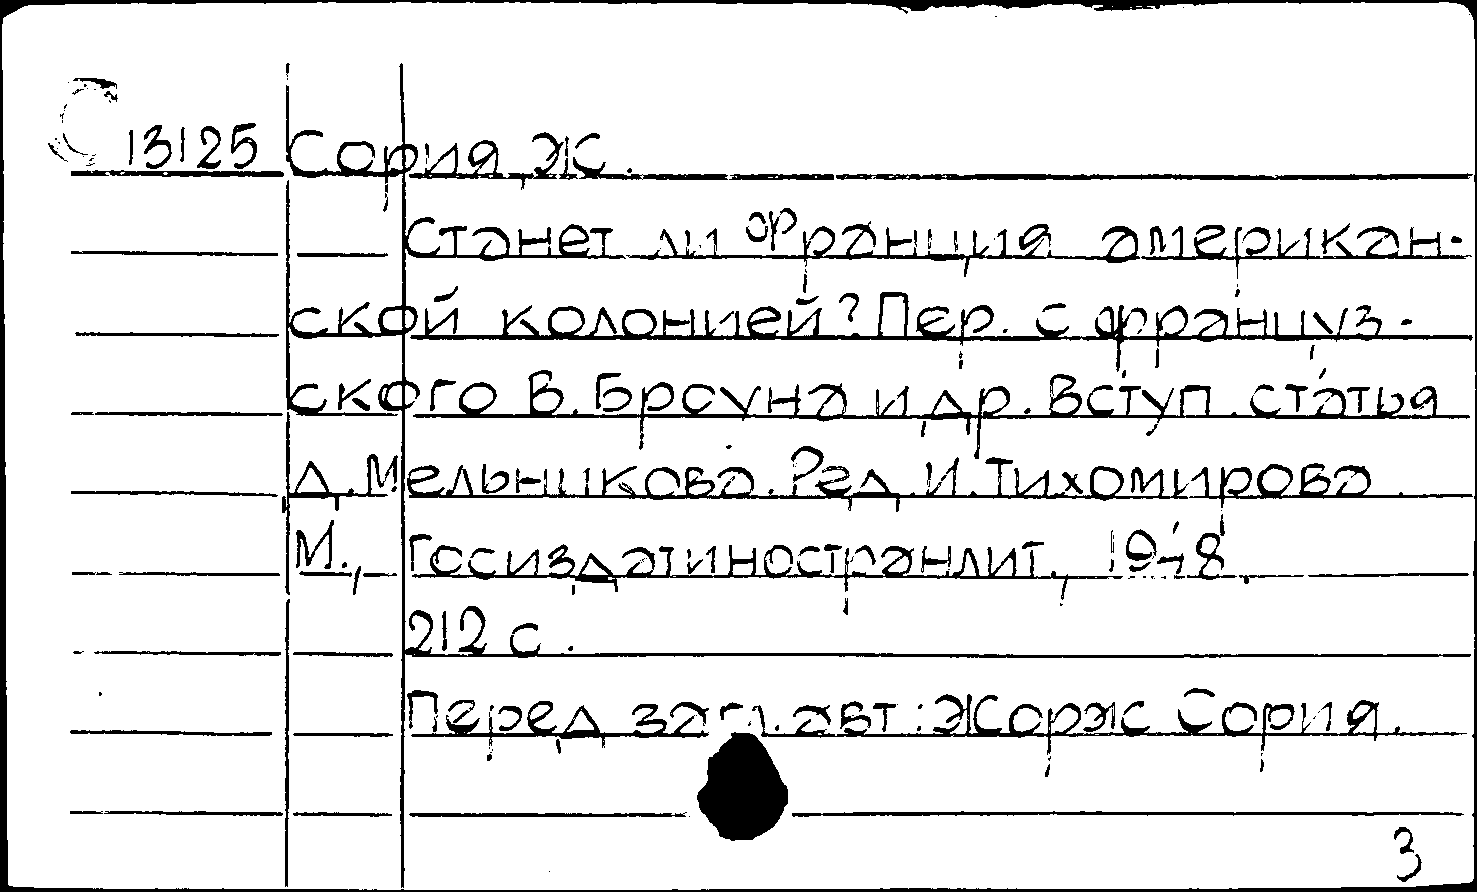 С 13125 Сория, Ж.
Станет ли Франция американ-
ской колонией? Пер. с француз-
ского В. Броуна и др. Вступ. статья
Д. Мельникова. Ред. И. Тихомирова.
М., Госиздатиностранлит., 1948.
212 с.
Перед загл. авт.: Жорж Сория.
3